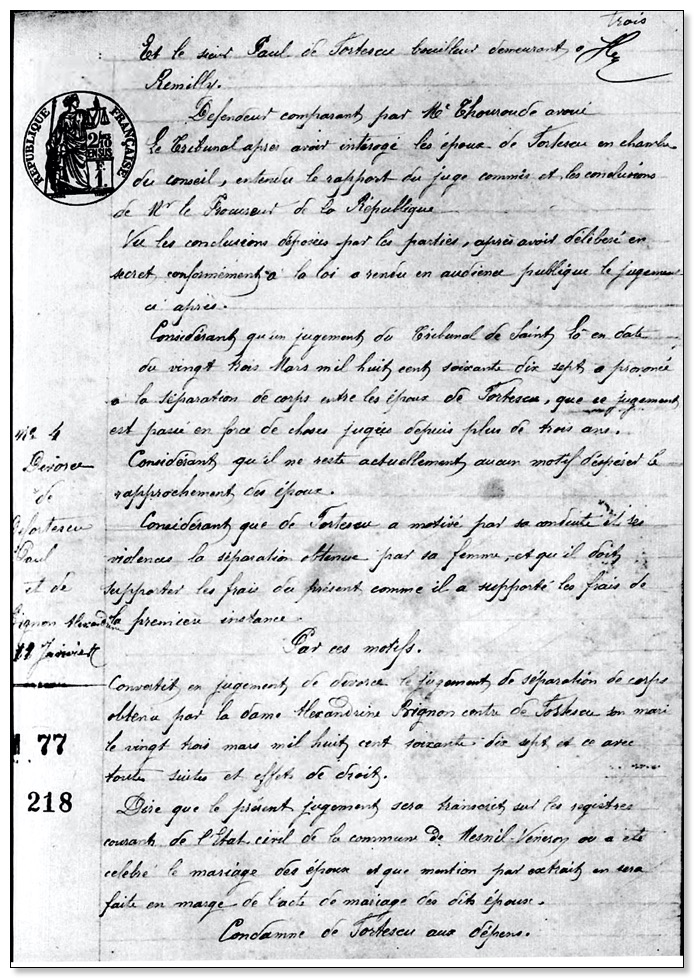 trois
Et le sieur Paul de Tortescu bouilleur demeurant a
Remilly.
Defendeur comparant par Me Thouroude avoué
Le Tribunal après avoir intérogé les époux de Tortescu en chambre
du conseil, entendu le rapport du juge commis et les conclusions
de Mr le Procureur de la République
Vu les conclusions déposées par les parties, après avoir délibéré en
secret conformément à la loi a rendu en audience publique le jugement
ci après.
Considérant qu'un jugement du Tribunal de Saint Lô en date
du vingt trois Mars mil huit cent soixante dix sept a prononcé
la séparation de corps entre les époux de Tortescu, que ce jugement
est passé en force de choses jugées depuis plus de trois ans.
Considérant qu'il ne reste actuellement aucun motif d'espérer le
rapprochement des époux.
Considérant que de Tortescu a motivé par sa conduite et ses
violences la séparation obtenue par sa femme, et qu'il doit
supporter les frais du présent comme il a supporté les frais de
la première instance.
Par ces motifs.
Convertit en jugement de divorce le jugement de séparation de corps
obtenu par la dame Alexandrine Brignon contre de Tortescu son mari
le vingt trois mars mil huit cent soixante dix sept et ce avec
toutes suites et effets de droit.
Dire que le présent jugement sera transcrit sur les registres
courants de l'Etat civil de la commune de Mesnil-Véneron ou a été
celebré le mariage des époux et que mention par extrait en sera
faite en marge de l'acte de mariage des dits époux.
Condamne de Tortescu aux dépens.
RÉPUBLIQUE FRANÇAISE
2/10
EN SUS
1F
No 4
Divorce
de
Tortescu
Paul
et de
Brignon Alexandrine
Janvier
77
218